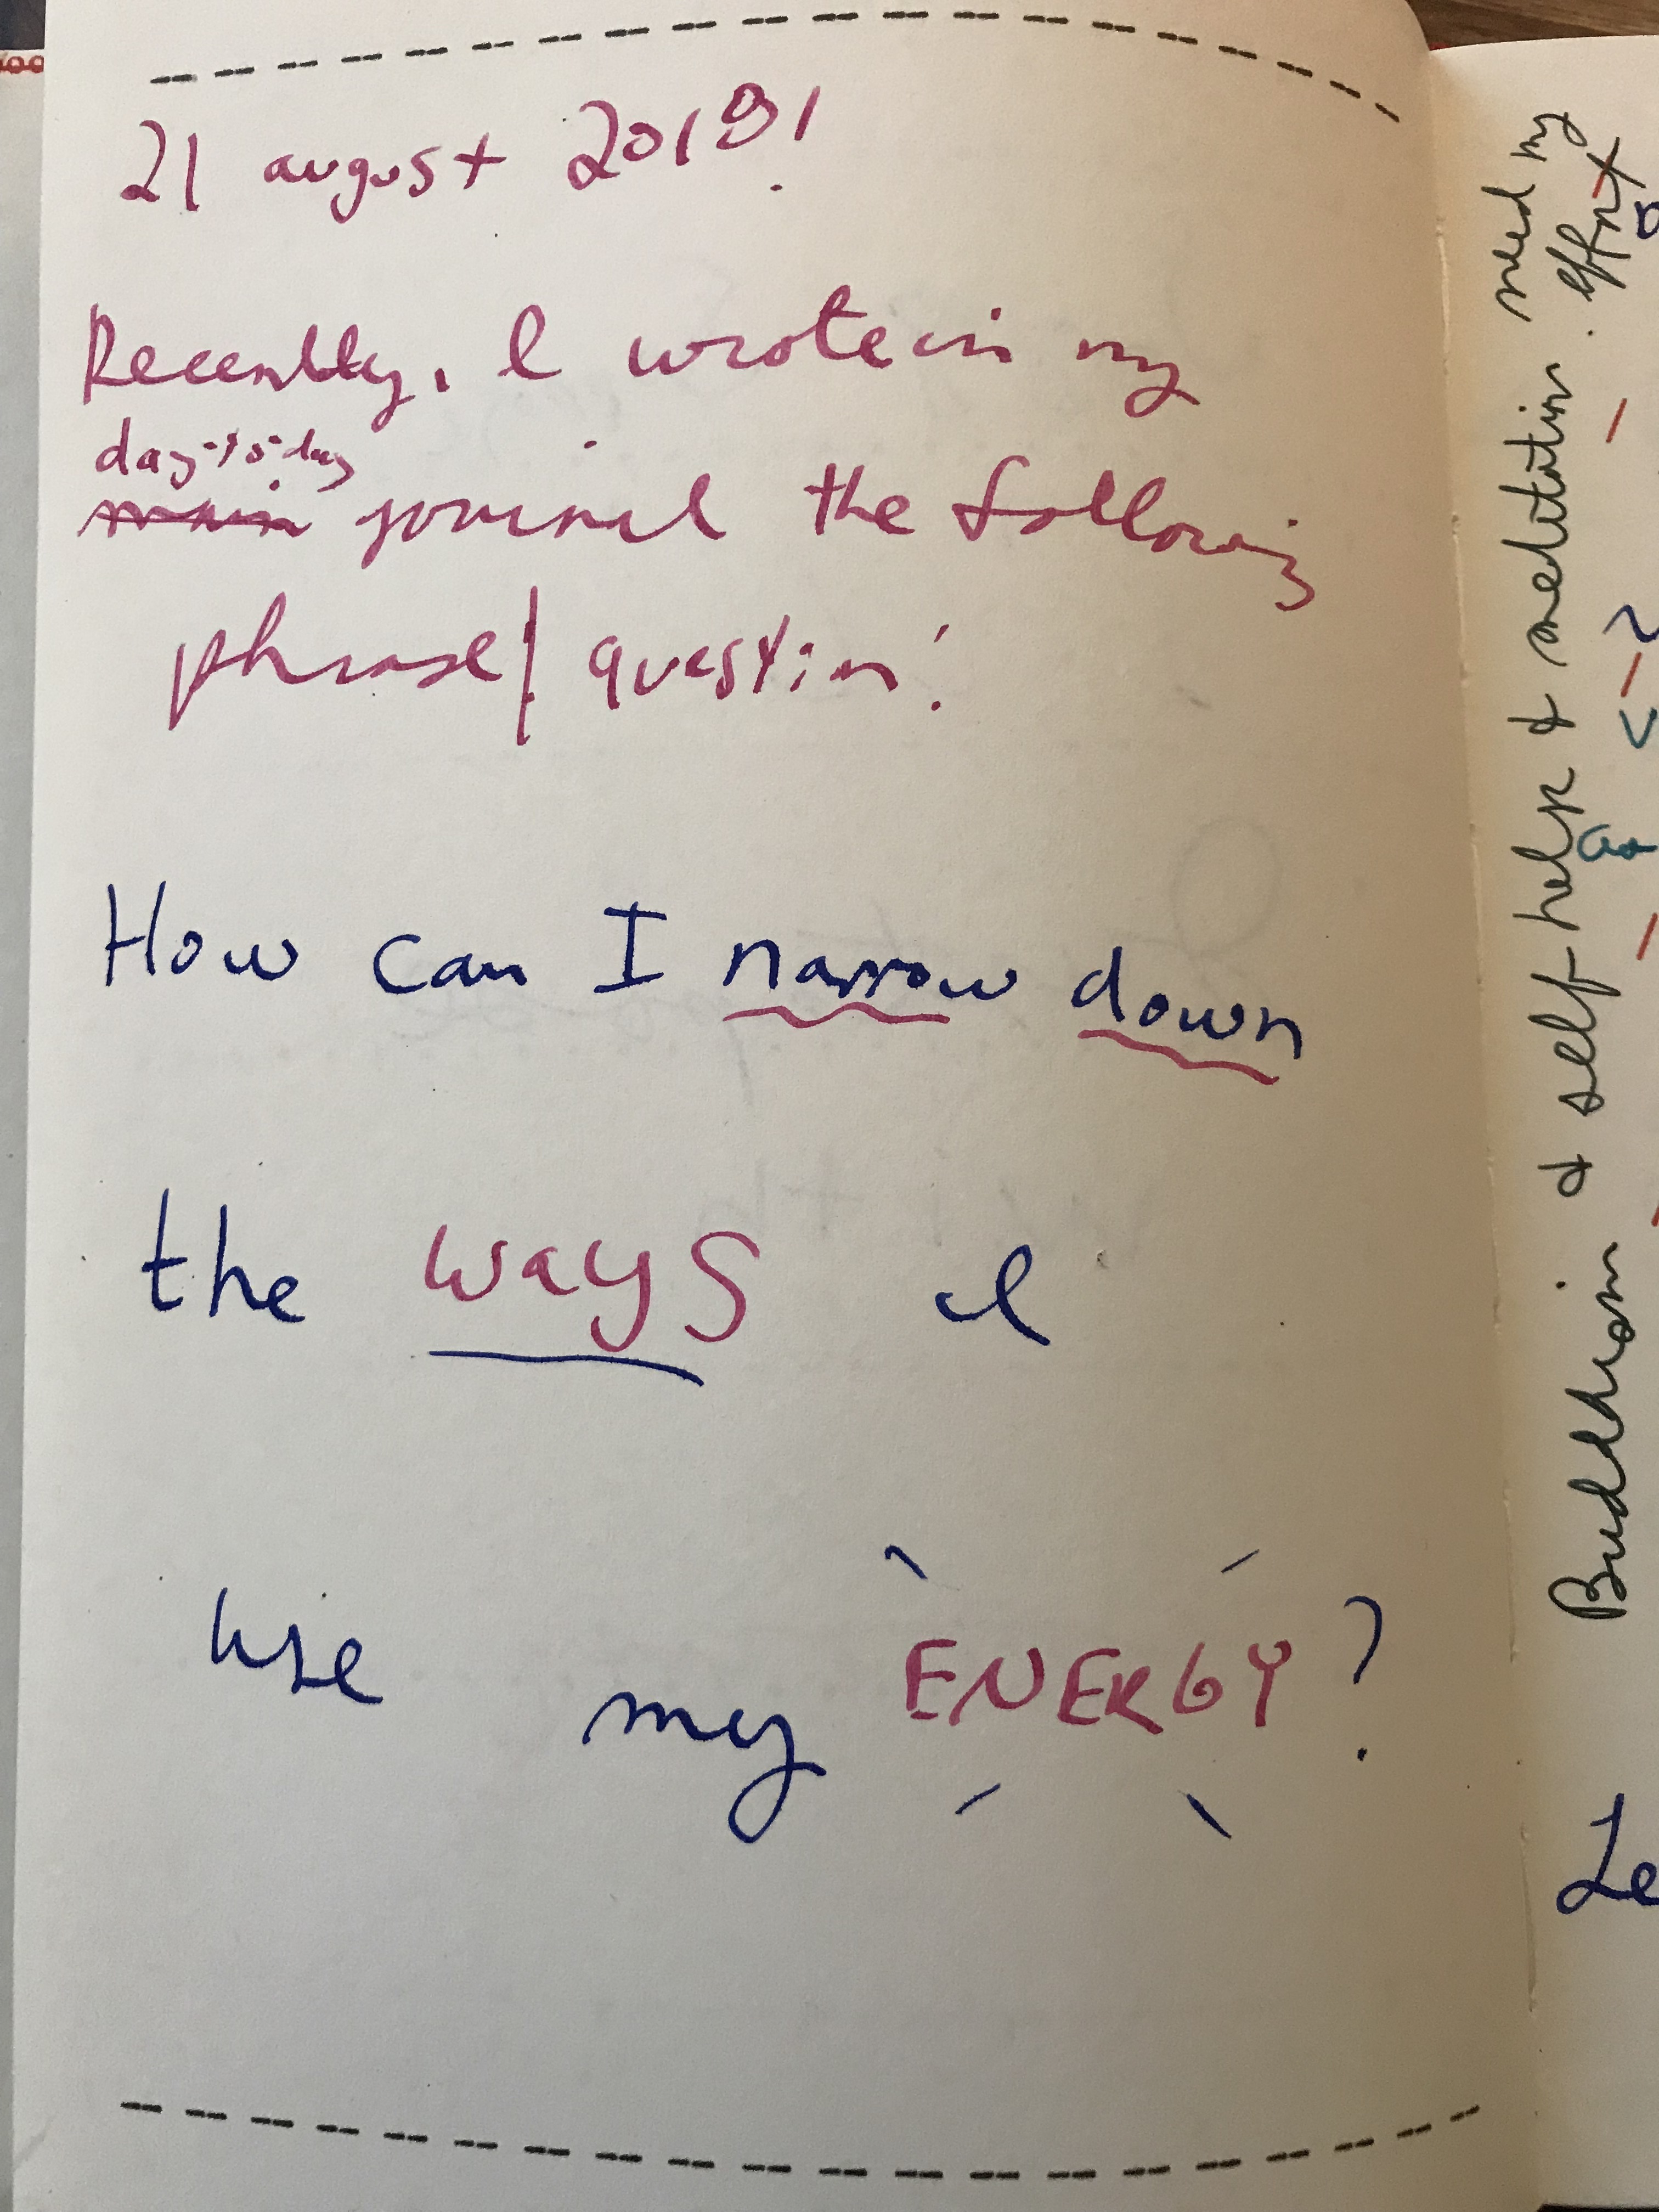 21 august 2018!
Recently, I wrote in my
day-to-day
main journal the following
phrase/question:
How can I narrow down
the ways I
use my ENERGY?
Buddhism & self help & meditation. need my
effort